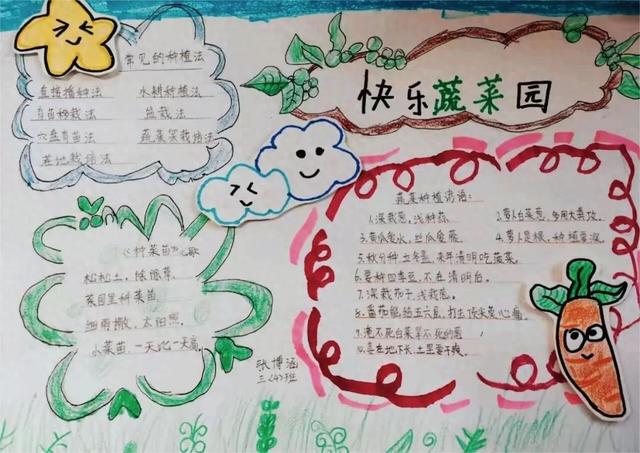 快乐蔬菜园
常见的种植法
直接播种法 水耕种植法
育苗移栽法 盆栽法
穴盘育苗法 蔬菜袋栽培法
露地栽培法
《种菜苗》儿歌
松松土，
菜园里种菜苗
细雨撒，太阳照，
小菜苗，一天比一天高
张博涵
三〈4〉班
蔬菜种植谚语：
1.深栽葱，浅种蒜。
2.萝卜白菜葱，多用大粪攻。
3.黄瓜爱水，丝瓜爱藤。
4.萝卜是根，种植
5.秋分种，立冬盖，来年清明吃菠菜。
6.要种四季豆，不在清明后。
7.深栽茄子，浅栽葱。
8.番茄
9.淹不死白菜旱不死的葱
10.姜在地下长，土